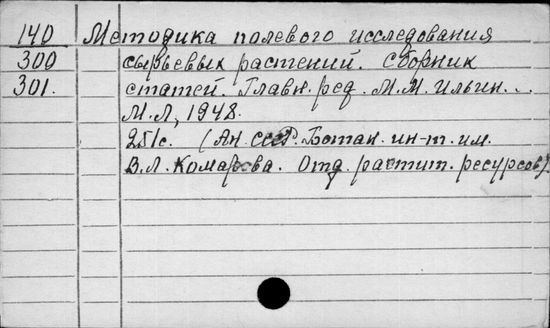 140 Методика полевого исследования
300 сырьевых растений. Сборник
301. статей. Главн. ред. М.М. Ильин...
М.Л, 1948.
251с. (Ан СССР. Ботан. ин-т. им.
В.Л. Комарова. Отд. растит. ресурсов).